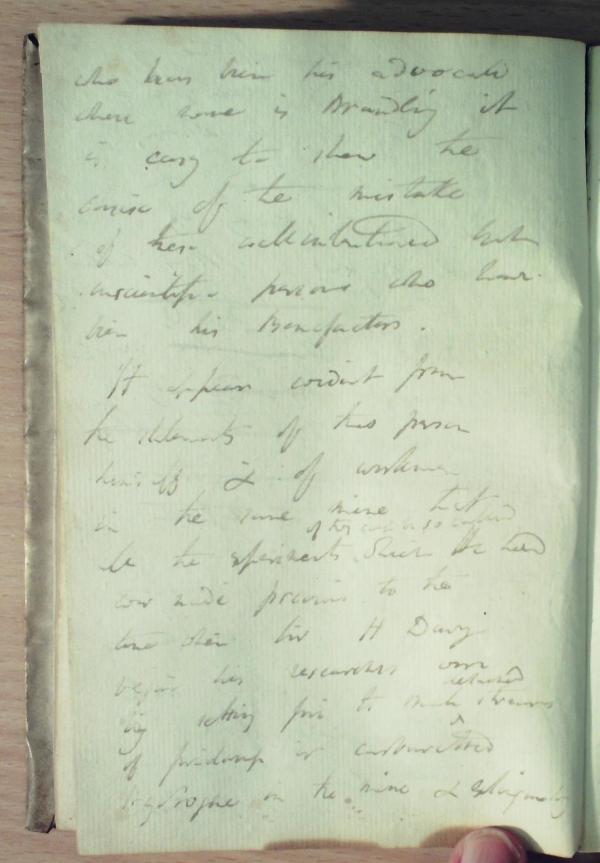 who have been his advocate
where none is Brandling it
is easy to shew the
cause of the mistake
of these well intentioned but
unscientific persons who have
been his Benefactors.
It appears evident from
the statements of this person
himself & of workmen
in the same mine that
of the
all the experiments Which He had
ever made previous to the
time when Sir H Davy
began his researches were
detached
by setting fire to such streams
of firedamp or carburetted
Hydrogene in the mine &